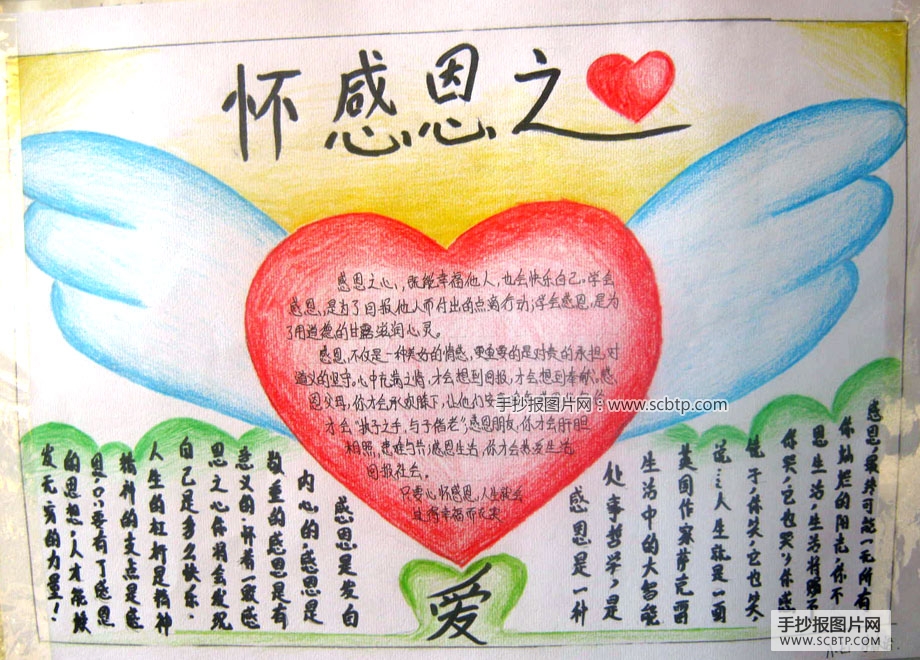 怀感恩之
感恩之心,既能幸福他人,也会快乐自己。学会
感恩,是为了回报他人而付出的点滴行动;学会感恩,是为
了用道德的甘露滋润心灵。
感恩,不仅是一种美好的情感,更重要的是对责的承担,对
道义的坚守。心中充满之情,才会想到回报,才会想到奉献。感
恩父母,你才会承欢膝下,让他们安
手抄报图片网:www.scbtp.com
才会"执子之手,与子偕老";感恩朋友,你才会肝胆
相照,患难与共;感恩生活,你才会热爱生活
回报社会。
只要心怀感恩,人生就会
过得幸福而充实
感恩是发自
内心的,感恩是
敬重的,感恩是有
意义的,怀着一颗感
恩之心你将会发现
自己是多么快乐.
人生的杠杆是精神
精神的支点是感
恩,只要有了感恩
的思想,人才能散
发无穷的力量!
感恩是一种
处事哲学,是
生活中的大智慧
英国作家萨克雷
说:人生就是一面
镜子,你笑,它也笑,
你哭,它也哭,你感
恩生活,生活将赐予
你灿烂的阳光,你不
感恩,最终可能一无所有
爱
手抄报图片网
WWW.SCBTP.COM